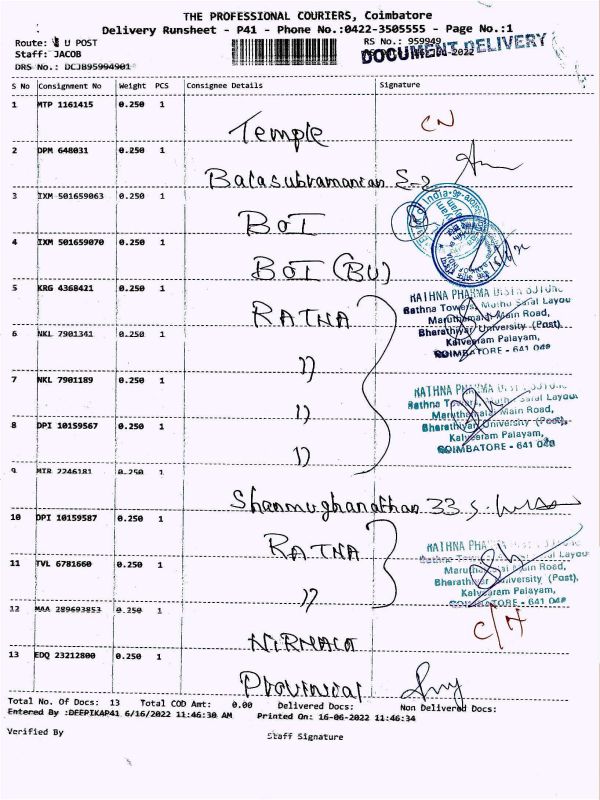 THE PROFESSIONAL COURIERS, Coimbatore
Delivery Runsheet - P41 - Phone No.:0422-3505555 - Page No.:1
Route: U POST
RS No.: 959949
Staff: JACOB
DOCUMENT DELIVERY
DRS No.: DCJB95994901
S No Consignment No Weight PCS Consignee Details Signature
1 MTP 1161415 0.250 1
Temple CN
2 DPM 648031 0.250 1
Balasubramanian E-2
3 IXM 501659063 0.250 1
BOI
4 IXM 501659070 0.250 1
BOI (BU)
5 KRG 4368421 0.250 1
RATNA
RATHNA PHARMA DISTRIBUTORS
Rathna Towers, Layou
Maruthamalai Main Road,
Bharathiyar University (Post),
Kalveeram Palayam,
COIMBATORE - 641 046
6 NKL 7901341 0.250 1
"
7 NKL 7901189 0.250 1
"
RATHNA PHARMA
Rathna Towers, Layou
Maruthamalai Main Road,
Bharathiyar University (Post),
Kalveeram Palayam,
COIMBATORE - 641 046
8 DPI 10159567 0.250 1
"
9 MTR 2246181 0.250 1
Shanmughanathan 33
10 DPI 10159587 0.250 1
RATNA
RATHNA PHARMA
Rathna Towers, Layou
Maruthamalai Main Road,
Bharathiyar University (Post),
Kalveeram Palayam,
COIMBATORE - 641 046
11 TVL 6781660 0.250 1
"
12 MAA 289693853 0.250 1
NIRMALA C/N
13 EDQ 23212800 0.250 1
Provincial
Total No. Of Docs: 13 Total COD Amt: 0.00 Delivered Docs: Non Delivered Docs:
Entered By :DEEPIKAP41 6/16/2022 11:46:30 AM Printed On: 16-06-2022 11:46:34
Verified By Staff Signature